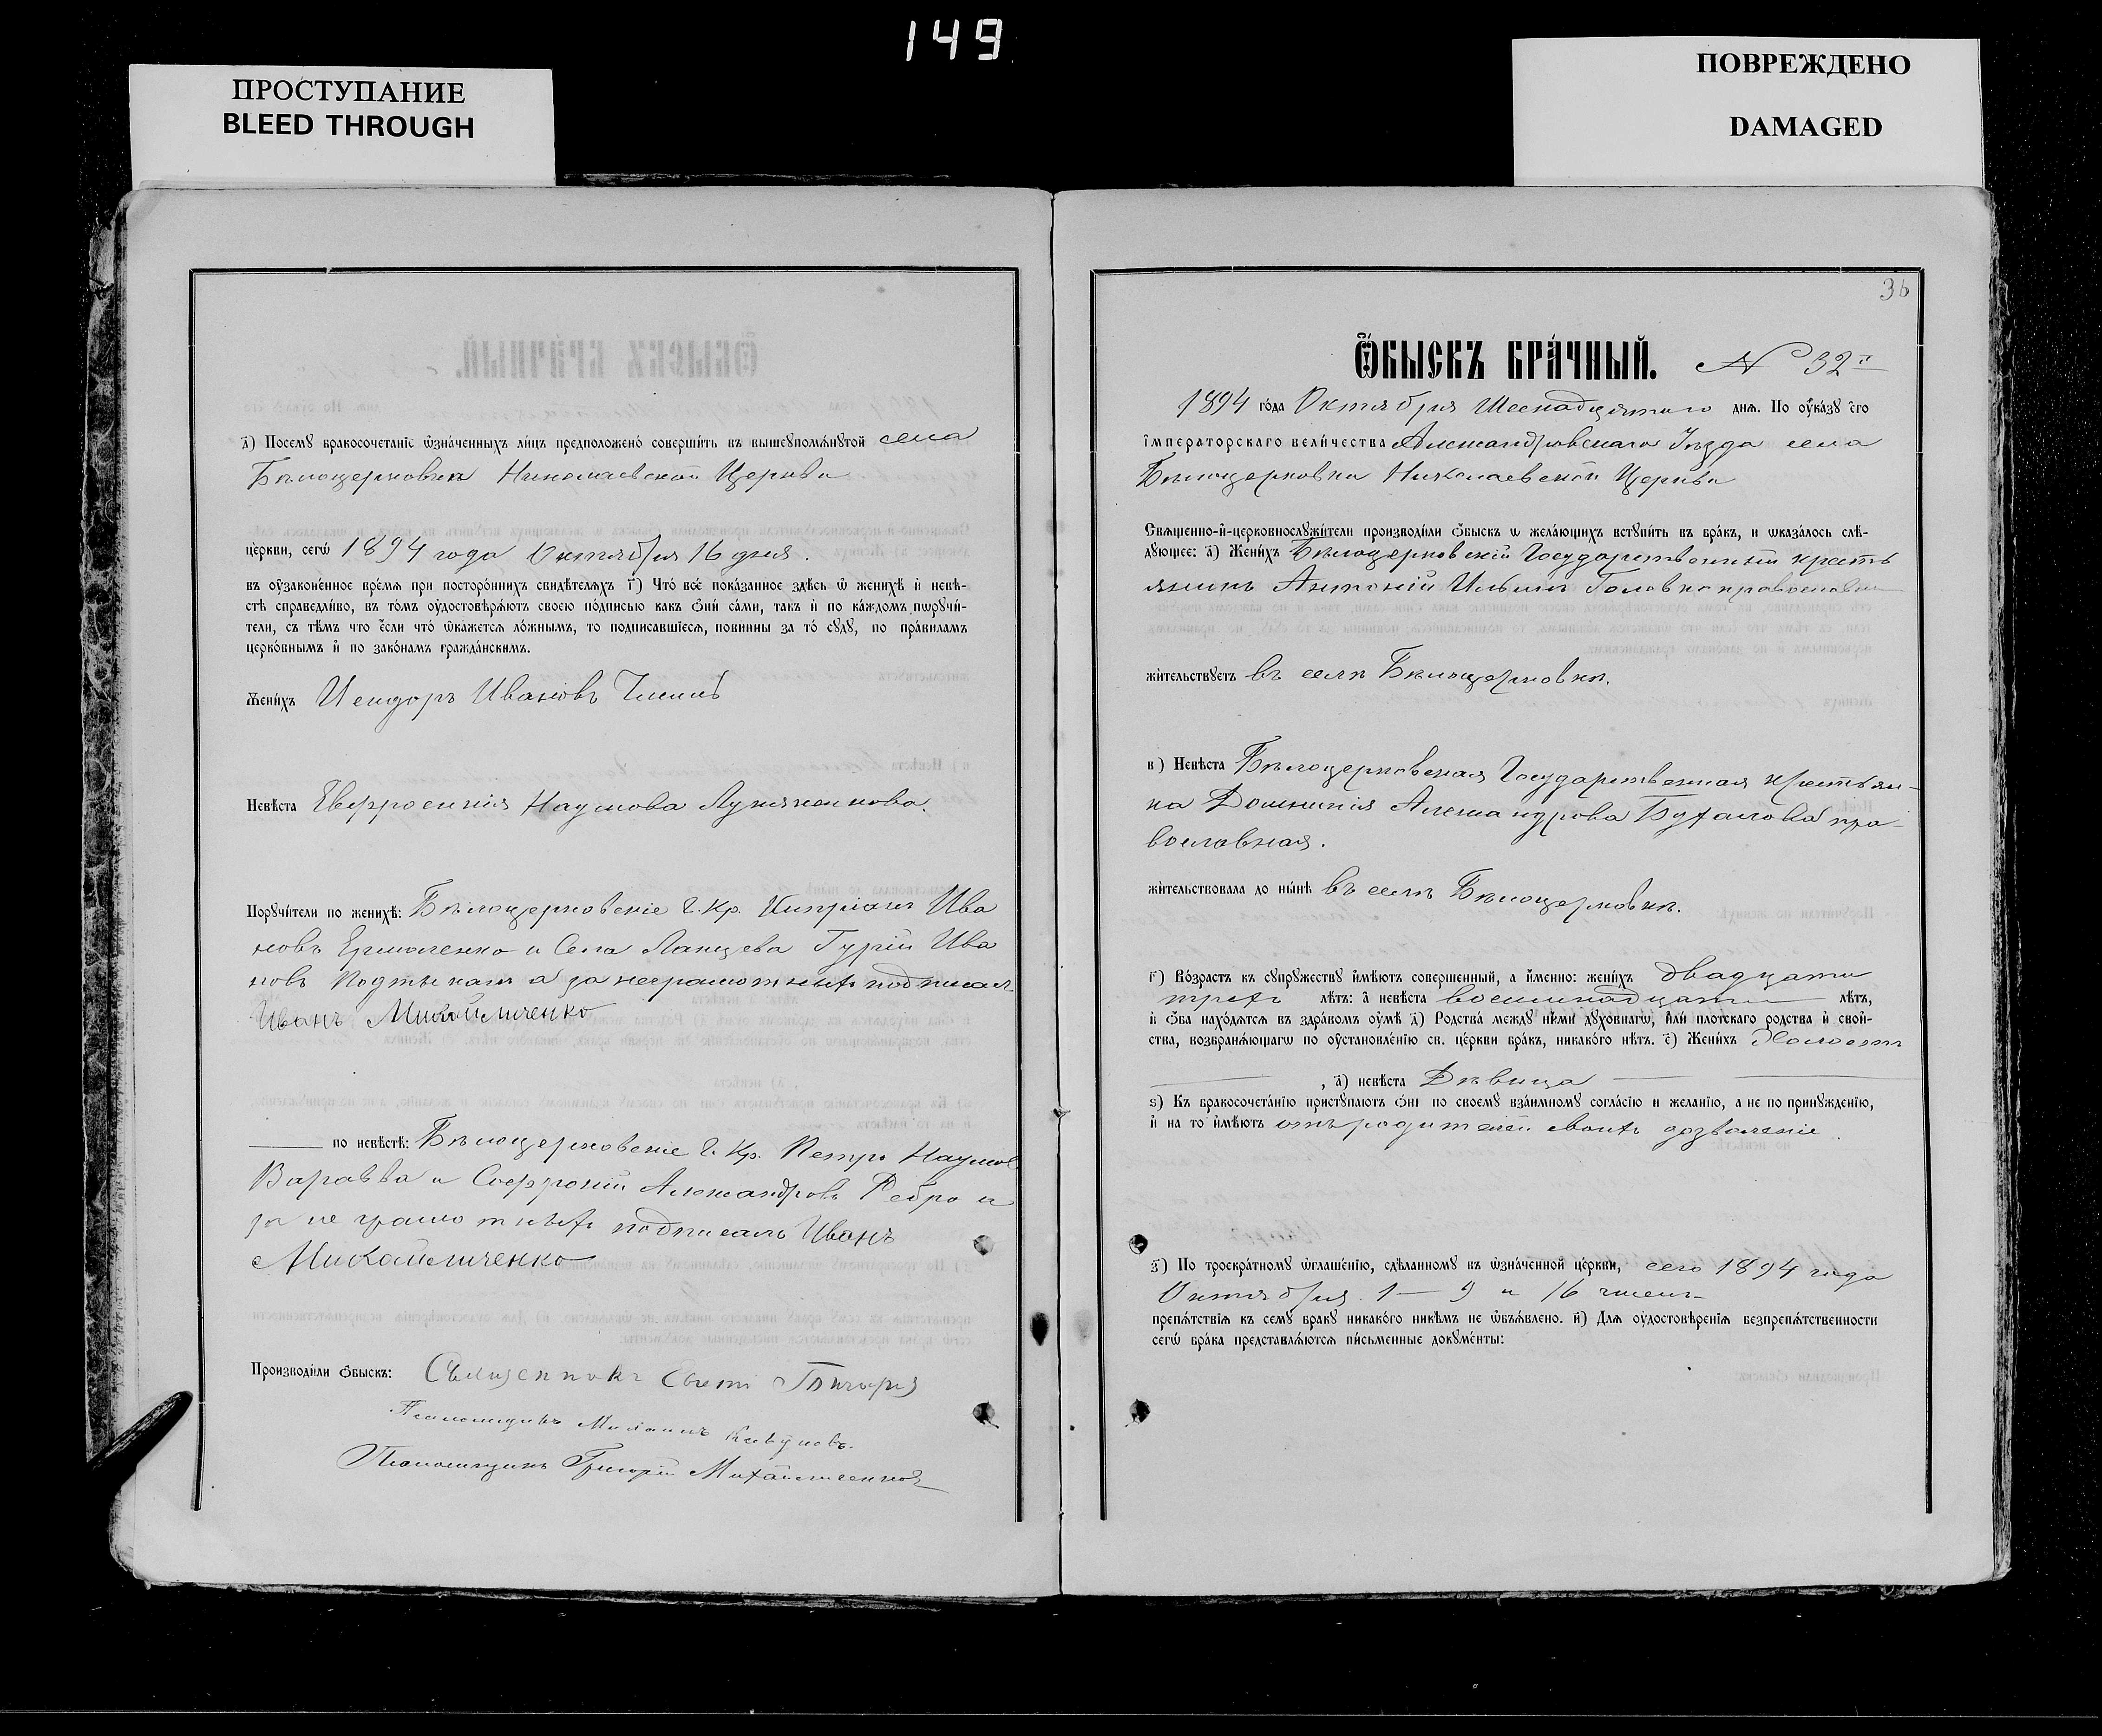 149
ПРОСТУПАНИЕ
BLEED THROUGH
ПОВРЕЖДЕНО
DAMAGED
д) Посему бракосочетаніе ѡзначенныхъ лицъ предположено совершить въ вышеупомянутой села
Бѣлоцерковки Николаевской Церкви
церкви, сегѡ 1894 года Октября 16 дня.
въ оузаконенное время при постороннихъ свидѣтеляхъ г) Что все показанное здѣсь ѡ женихѣ и невѣ-
стѣ справедливо, въ томъ оудостовѣряютъ своею подписью какъ ѻни сами, такъ и по каждомъ порꙋчи-
тели, съ тѣмъ что если что ѡкажется ложнымъ, то подписавшіеся, повинны за то сꙋдꙋ, по правиламъ
церковнымъ и по законамъ гражданскимъ.
Женихъ Исидоръ Ивановъ
Невѣста Евфросинія Наумова Лукяненкова.
Порꙋчители по женихѣ: Бѣлоцерковскіе Г. Кр. Кипріанъ Ива
новъ Ермоленко и Села Ланцева Гурій Ива
новъ а за неграмотныхъ подписал
Иванъ Михайличенко
по невѣстѣ: Бѣлоцерковскіе Г. Кр. Петръ Наумов
Варавва и Софроній Александровъ Ребро и
за не грамотныхъ подписалъ Иванъ
Михайличенко
Производили ѻбыскъ: Священникъ
Псаломщикъ
Псаломщикъ Григорій Михайличенко
36
Ѻбыскъ брачный. N 32й
1894 года Октября Шеснадцятого дня. По оуказꙋ єго
императорскаго величества Александровскаго Уѣзда села
Бѣлоцерковки Николаевской Церкви
Священно-и-церковнослꙋжители производили ѻбыскъ ѡ желающихъ вступить въ бракъ, и ѡказалось слѣ-
дꙋющее: а) Женихъ Бѣлоцерковскій Государственный кресть
янинъ Антоній Ильинъ Головко православн
жительствꙋетъ въ селѣ Бѣлоцерковкѣ.
в) Невѣста Бѣлоцерковская Государственная крестьян-
ка Домникія Александрова пра-
вославная.
жительствовала до нынѣ въ селѣ Бѣлоцерковкѣ.
г) Возрастъ къ сꙋпрꙋжествꙋ имѣютъ совершенный, а именно: женихъ двадцати
трехъ лѣтъ: а невѣста восемнадцати лѣтъ,
и ѻба находятся въ здравомъ оумѣ д) Родства между ними дꙋховнагѡ, или плотскаго родства и свой-
ства, возбраняющагѡ по оустановленію св. церкви бракъ, никакого нѣтъ. е) Женихъ Холостъ
, а) невѣста Дѣвица
ѕ) Къ бракосочетанію приступаютъ ѻни по своему взаимномꙋ согласію и желанію, а не по принꙋжденію,
и на то имѣютъ отъ родителей своихъ дозволеніе.
з) По троекратномꙋ ѡглашенію, сдѣланномꙋ въ ѡзначенной церкви, сего 1894 года
Октября 1 – 9 и 16 чиселъ
препятствія къ семꙋ бракꙋ никакого никѣмъ не ѡбъявлено. и) Для оудостовѣренія безпрепятственности
сегѡ брака представляются письменные докꙋменты: